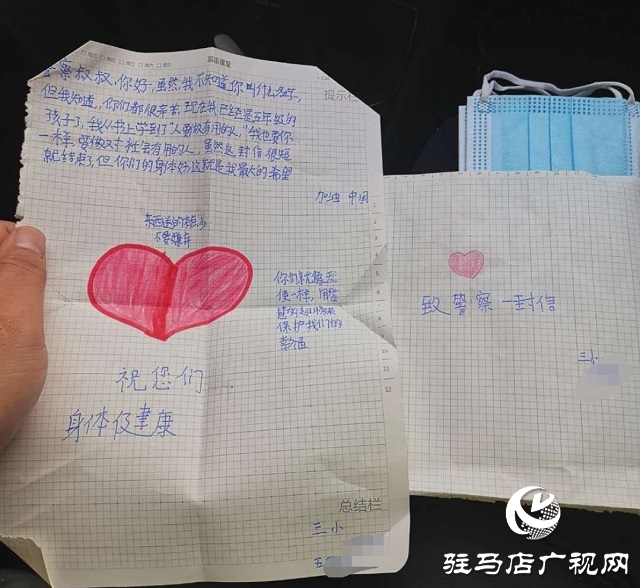 警察叔叔，你好，虽然我不知道你叫什么名字，
但我知道，你们都很辛苦，现在我已经是五年级的
孩子了，我从书上学到了“人要做有用的人，”我也要你
一样，要做对社会有用的人，虽然这封信很短
就结束了，但你们的身体好这就是我最大的希望
加油 中国
提示栏
东西送的有点少
不要嫌弃
你们就像天
使一样，用
保护我们的
幸福
祝您们
身体健康
总结栏
三小
致警察一封信
三小
驻马店广视网